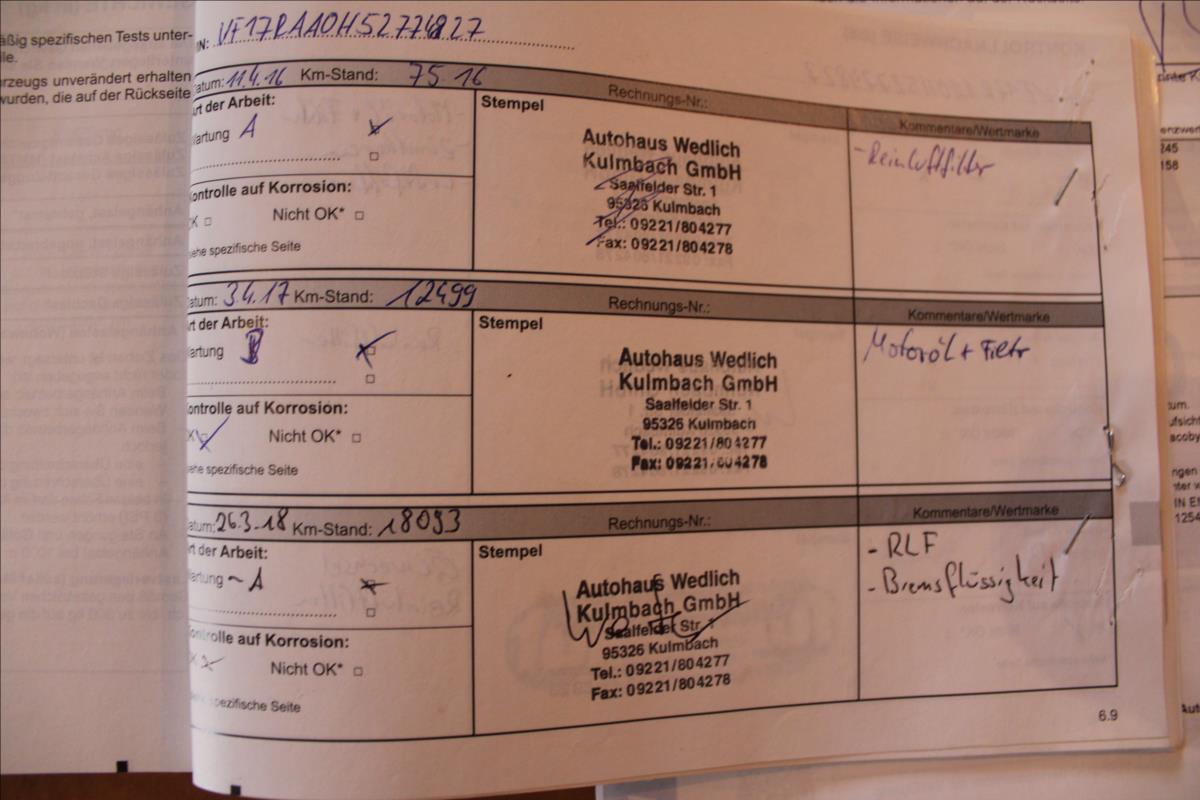 äßig spezifischen Tests unter-
rzeugs unverändert erhalten
wurden, die auf der Rückseite
IN:
atum: 11.4.16 Km-Stand: 75 16
Rechnungs-Nr.:
Kommentare/Wertmarke
rt der Arbeit:
artung A
Stempel
Autohaus Wedlich
Kulmbach GmbH
Saalfelder Str. 1
95326 Kulmbach
Tel.: 09221/804277
Fax: 09221/804278
- Reinluftfilter
ontrolle auf Korrosion:
K Nicht OK*
ehe spezifische Seite
atum: 3.4.17 Km-Stand: 12499
Rechnungs-Nr.:
Kommentare/Wertmarke
rt der Arbeit:
artung B
Stempel
Autohaus Wedlich
Kulmbach GmbH
Saalfelder Str. 1
95326 Kulmbach
Tel.: 09221/804277
Fax: 09221/804278
Motoröl + Filter
ontrolle auf Korrosion:
K Nicht OK*
ehe spezifische Seite
atum: 26.3.18 Km-Stand: 18093
Rechnungs-Nr.:
Kommentare/Wertmarke
rt der Arbeit:
artung - A
Stempel
Autohaus Wedlich
Kulmbach GmbH
Saalfelder Str. 1
95326 Kulmbach
Tel.: 09221/804277
Fax: 09221/804278
- RLF
- Bremsflüssigkeit
ontrolle auf Korrosion:
Nicht OK*
spezifische Seite
6.9